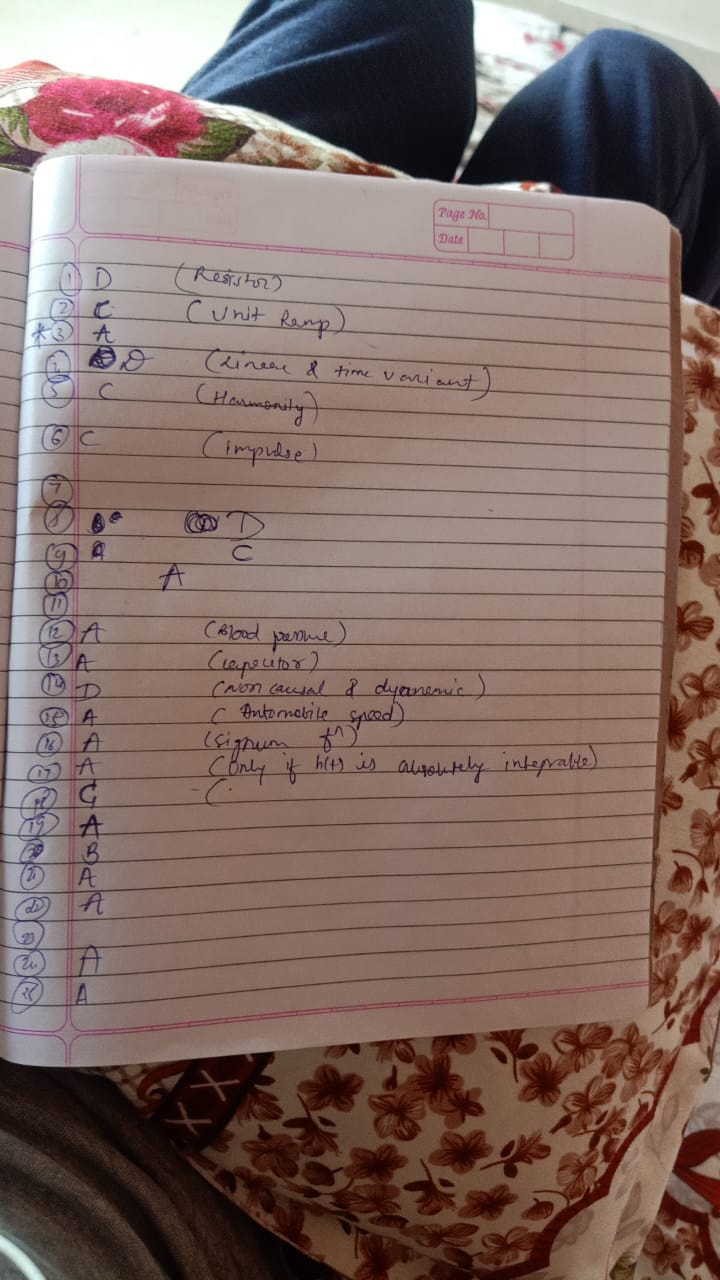 Page No.
Date
1 D (Resistor)
2 C (Unit Ramp)
*3 A
4 D (Linear & time variant)
5 C (Harmonity)
6 C (impulse)
7
8 D
9 C
10 A
11
12 A (Blood pressure)
13 A (capacitor)
14 D (Non causal & dyanemic)
15 A (Automobile speed)
16 A (signum fn)
17 A (only if h(t) is absolutely integrable)
18 C (
19 A
20 B
21 A
22 A
23
24 A
25 A